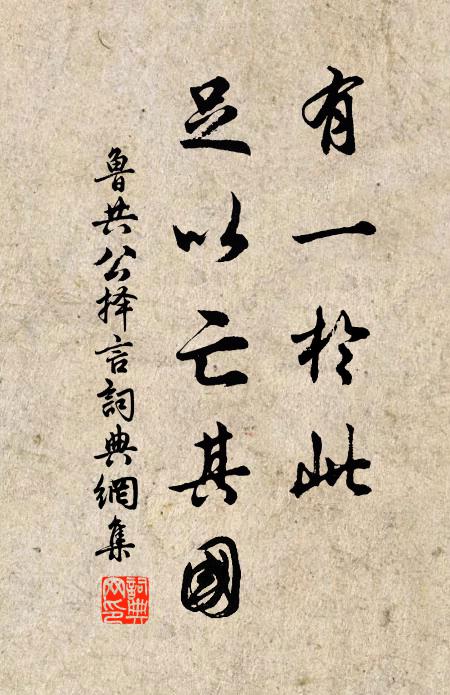 有一於此
足以亡其國
魯共公择言詞典網集
詞典